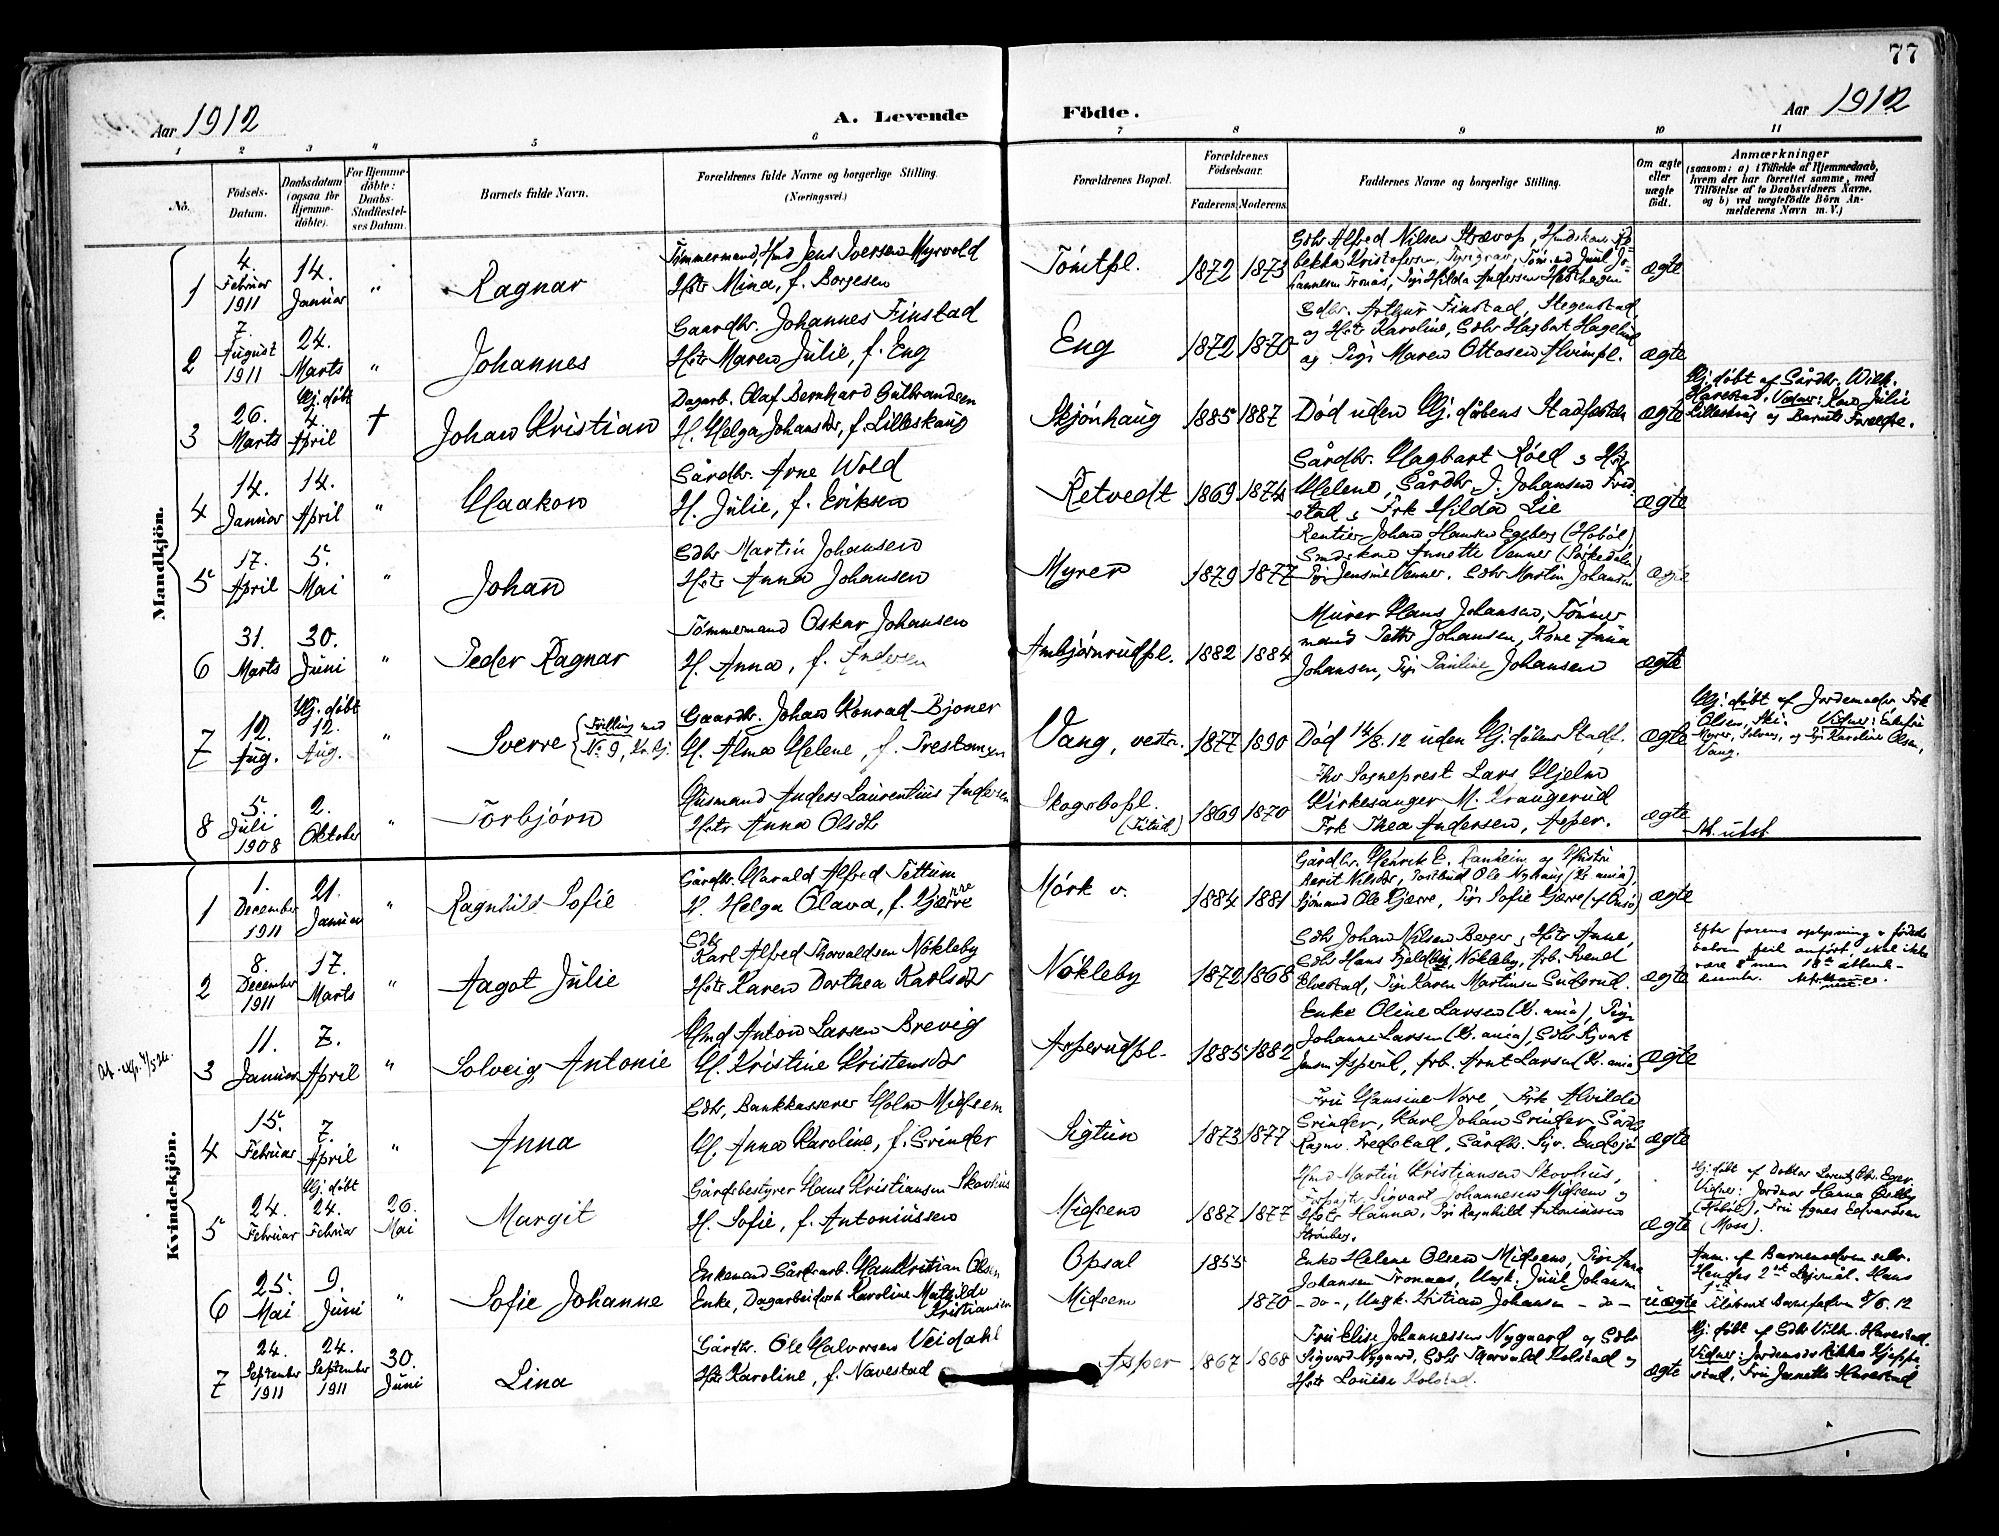 77
Aar 1912
A. Levende Födte.
Aar 1912
1 2 3 4 5 6 7 8 9 10 11
No.
Födsels-Datum.
Daabsdatum (ogsaa for Hjemmedöbte).
For Hjemmedöbte: Daabs-Stadfæstelses Datum.
Barnets fulde Navn.
Forældrenes fulde Navne og borgerlige Stilling. (Næringsvei.)
Forældrenes Bopæl.
Forældrenes Födselsaar. Faderens. Moderens.
Faddernes Navne og borgerlige Stilling.
Om ægte eller uægte födt.
Anmærkninger (saasom: a) i Tilfælde af Hjemmedaab, hvem der har forrettet samme, med Tilföielse af to Daabsvidners Navne, og b) ved uægtefödte Börn Anmelderens Navn m. V.)
Mandkjön.
1 4. Februar 1911 14. Januar " Ragnar
Tømmermand, Hmd Jens Iversen Myrvold
Hstr Mina, f. Borgesen
Tomtpl. 1872 1873
Gdbr Alfred Nilsen
ægte
2 7. August 1911 24. Marts " Johannes
Gaardbr. Johannes Finstad
Hstr Maren Julie, f. Eng
Eng 1872 1870
Gdbr. Arthur Finstad, Hegenstad,
og Hstr Karoline, Gdbr Hagbart Hagelund
og Pige Maren Ottosen
ægte
3 26. Marts Hj. døbt 4. April † Johan Kristian
Dagarb. Olaf Bernhard Gulbrandsen
H. Helga Johansdtr, f. Lilleskaug
Skjønhaug 1885 1887
Død uden Hj. døbens Stadfæstelse
ægte
Hj. døbt af Gårdbr. Wilh.
Harestad. Vidner: Kone Julie
Lilleskaug og Barnets Forældre.
4 14. Januar 14. April " Haakon
Gårdbr. Arne Wold
H. Julie, f. Eriksen
Retvedt 1869 1874
Gårdbr. Hagbart Røed & Hstr
Helene, Gårdbr J. Johansen Fred-
stad & Frk Hilda Lie
ægte
5 17. April 5. Mai " Johan
Gdbr Martin Johansen
Hstr Anna Johansen
Myrer 1879 1877
Rentier Johan Hansen Egeberg (Hobøl),
Smedskone Annette Venner
Pige Jensine Venner. Gdbr Martin Johansen
ægte
6 31. Marts 30. Juni " Peder Ragnar
Tømmermand Oskar Johansen
H. Anna, f. Andersen
Ambjørnrudpl. 1882 1884
Murer Hans Johansen, Tømmer-
mand Petter Johansen, Kone Anna
Johansen, Pige Pauline Johansen
ægte
7 12. Aug. Hj. døbt 12. Aug. " Sverre (Tvilling med No 9, Kv.kj.
Gaardbr. Johan Konrad Bjoner
H. Alma Helene, f. Prestangen
Vang, vestr. 1877 1890
Død 14/8.12 uden Hj. døbens Stadf.
ægte
Hj. døbt af Jordemoder Frk
Olsen, Ski. Vidner: Enkefru
Myrer, Solvang, og Pige Karoline Olsen,
Vang.
8 5. Juli 1908 2. Oktober " Torbjørn
Husmand Anders Laurentius Andersen
Hstr Anna Olsdtr
Skogsbopl. 1869 1870
Fhv Sogneprest Lars Hjelm
Kirkesanger M. Krangerud
Frk Thea Andersen, Asper.
ægte
Kvindekjön.
1 1. December 1911 21. Januar " Ragnhild Sofie
Gårdbr. Harald Alfred Tettum
H. Helga Olava, f. Kjærre
Mørk v. 1884 1881
Gårdbr. Henrik E. Ranheim og Hustru
Berit Nilsdtr, Postbud Ole Nyhaug (Kr.ania),
Sjømand Ole Kjærre, Pige Sofie Kjærre
ægte
2 8. December 1911 17. Marts " Aagot Julie
Gdbr
Karl Alfred Thorvaldsen Nøkleby
Hstr Karen Dorthea Karlsdtr
Nøkleby 1872 1868
Gdbr Johan Nilsen Berger & Hstr Anne,
Gdbr Hans Nøkleby, Arb. Svend
Elvestad, Pige Karen Martinsen Suterud.
ægte
3 11. Januar 7. April " Solveig Antonie
Hmd Anton Larsen Brevig
H. Kristine Kristensdtr
Asperudpl. 1885 1882
Enke Oline Larsen (Kr.ania), Pige
Johanne Larsen (Kr.ania), Gdbr Sigvart
Jensen Asperud, Arb. Arnt Larsen (Kr.ania)
ægte
4 15. Februar 7. April " Anna
Gdbr, Bankkasserer Holm Midsem
H. Anna Karoline, f. Grinder
Sigtun 1873 1877
Fru Hansine Nore, Frk Alvilde
Grinder, Karl Johan Grinder
Ragnv. Fredstad, Gårdbr. Sigv. Endsjø
ægte
5 24. Februar Hj. døbt 24. Februar 26. Mai Margit
Gårdsbestyrer Hans Kristiansen Skovlius
H. Sofie, f. Antoniussen
Midsem 1887 1877
Hmd Martin Kristiansen Skovlius,
Forpagt. Sigvart Johannesen Midsem &
Hstr Hanna, Pige Ragnhild Antoniussen
ægte
Hj. døbt af Doktor Lorentz Chr. Eger.
Vidner: Jordmor Hanna
(Hobøl), Fru Agnes Edvardsen
(Moss).
6 25. Mai 9. Juni " Sofie Johanne
Enkemand Gårdsarb. Hans Kristian Olsen
Enke, Dagarbeiderske Karoline Mathilde
Kristiansen
Opsal 1855
Midsem 1870
Enke Helene Olsen Midsem, Pige Anne
Johansen Tronaas, Ungk. Juul Johansen
– do –, Ungk. Kristian Johansen – do –
uægte
Anm. af Barnemoderen selv.
Hendes 2det Leiermål. Hans
1ste Tilstævnt Barnefaderen 8/6.12
7 24. September 1911 24. September 1911 30. Juni Lina
Gårdbr. Ole Halvorsen Veidahl
Hstr Karoline, f. Navestad
Asper 1867 1868
Fru Elise Johannessen Nygaard og Gdbr
Sigvard Nygaard, Gdbr Thorvald Kolstad &
Hstr Louise Kolstad.
ægte
Hj. døbt af Gdbr Vilh. Harestad.
Vidner: Jordemoder Rikka Kjeppe-
stad, Fru Jeanette Harestad